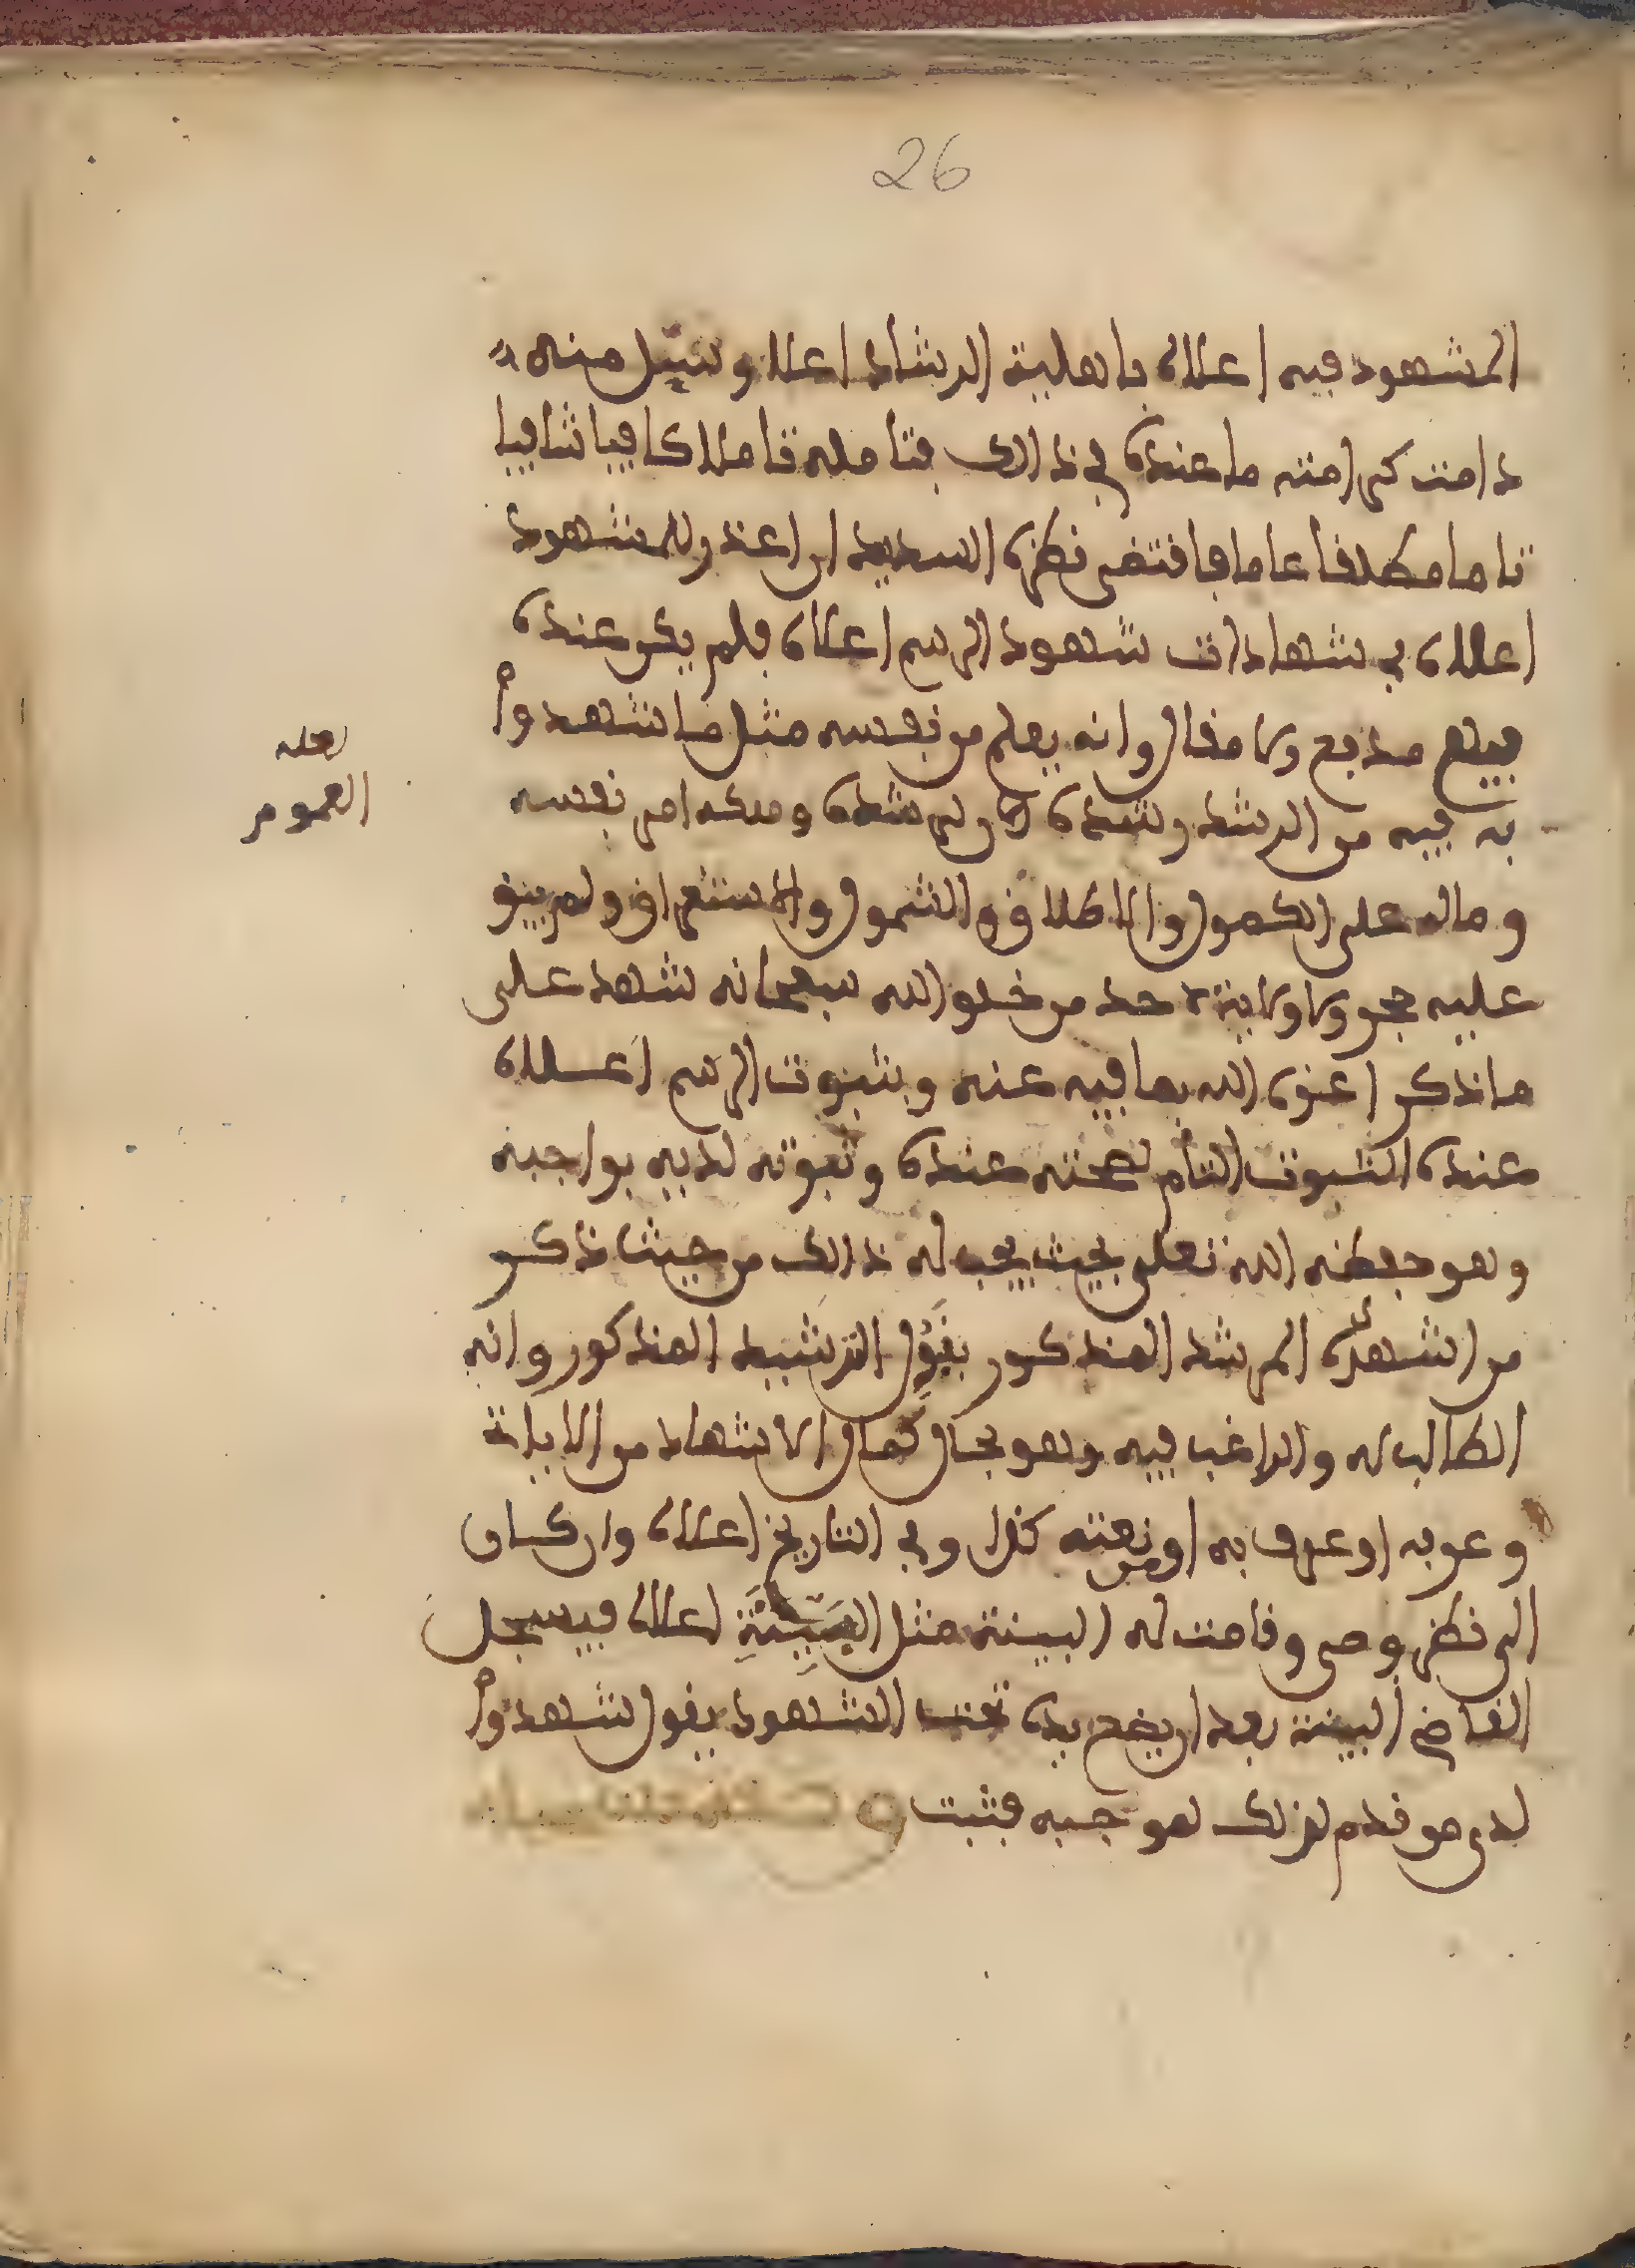 26
المشهود فيه اعلاه باهلية الرشاد اعلاه وسئل منه
دامت كرامته ما عنده في ذالك فتامله تاملا كافيا شافيا
تاما مطلفا عاما فافتضى نظره السديد ان اعذر للمشهود
اعلاه في شهادات شهود الرسم اعلاه فلم يكن عنده
فيهم مدفع ولا مفال وانه يعلم من نفسه مثل ما شهدوا
به فيه من الرشد رشده لا ولي رشده وملكه امر نفسه
لعله
العموم
وماله على العموم والاطلاف والشمول والاستغراف ولم يبف
عليه حجر ولا ولاية لاحد من خلف الله سبحانه شهد على
ما ذكر اعزه الله بما فيه عنه وبثبوت الرسم اعلاه
عنده الثبوت التام لصحته عنده وثبوته لديه بواجبه
وهو حفظه الله تعلى بحيث يجب له ذالك من حيث ذكر
من اشهده المرشد المذكور بفبول الترشيد المذكور وانه
الطالب له والراغب فيه وهو بحال كمال الاشهاد من الاباة
وعرفه او عرف به او نعته كذا وفي التاريخ اعلاه وان كان
الى نظر وصي وفامت له البينة مثل البينة اعلاه فيسجل
الفاضي البينة بعد ان يضع يده تحت الشهود يفول شهدوا
لدى من فدم لذلك لموجبه فثبت